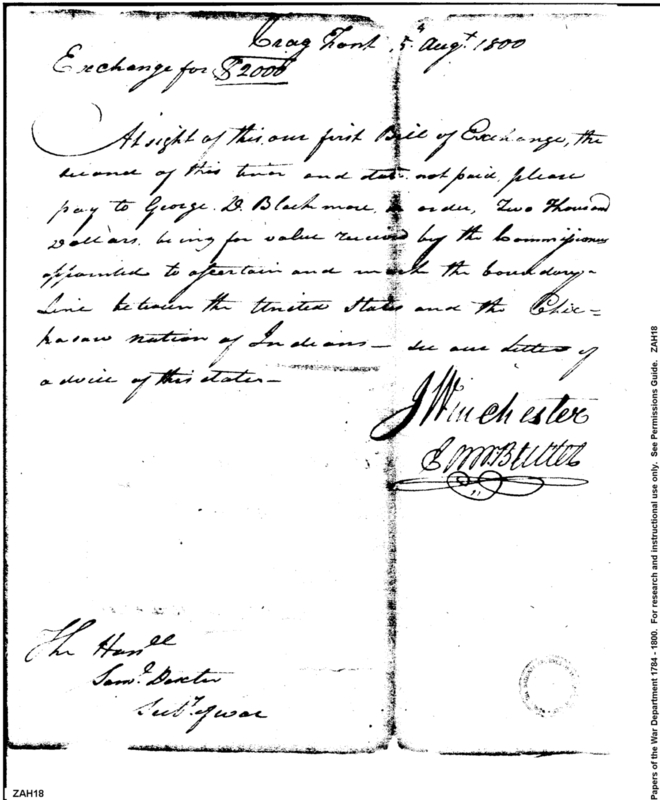 Crag Font 5th Augt. 1800
Exchange for $2000
At sight of this our first Bill of Exchange, the
second of this tenor and date not paid, please
pay to George D. Blackmore or order, Two Thousand
Dollars, being for value received by the Commissioners
appointed to ascertain and mark the boundary
Line between the United States and the Chic=
kasaw nation of Indians — see our Letter of
advice of this date —
J Winchester
Butler
The Honll
Saml. Dexter
Secty. of war
ZAH18
Papers of the War Department 1784 - 1800. For research and instructional use only. See Permissions Guide. ZAH18